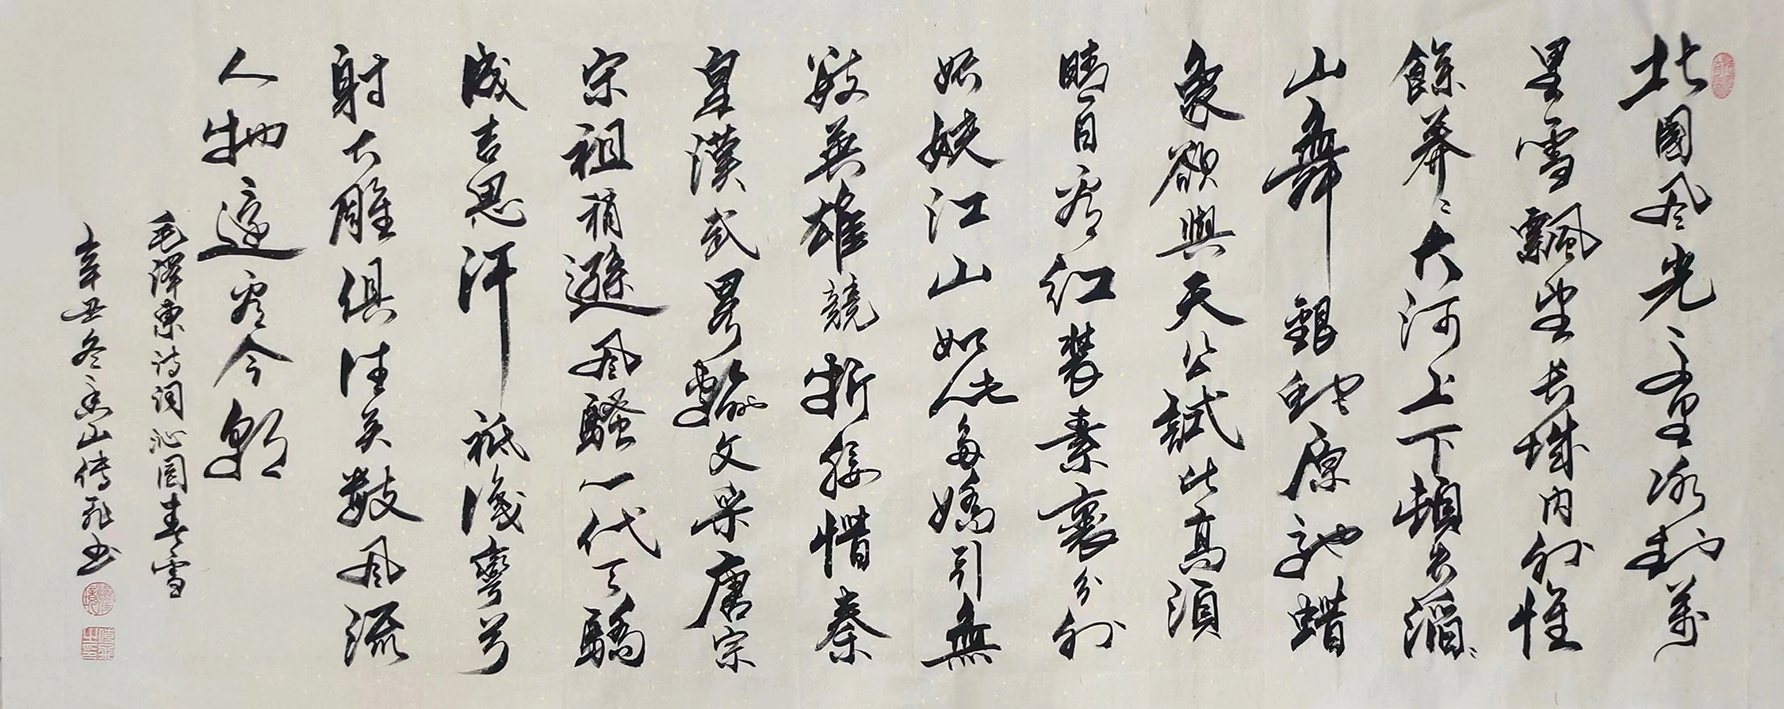 北國風光千里冰封萬
里雪飄望長城內外惟
餘莽々大河上下頓失滔々
山舞銀蛇原馳蠟
象欲與天公試比高須
晴日看紅裝素裹分外
妖嬈江山如此多嬌引無
數英雄競折腰惜秦
皇漢武畧輸文采唐宗
宋祖稍遜風騷一代天驕
成吉思汗祗識彎弓
射大雕俱往矣數風流
人物還看今朝
毛澤東诗词沁園春雪
辛丑冬 山傅 书